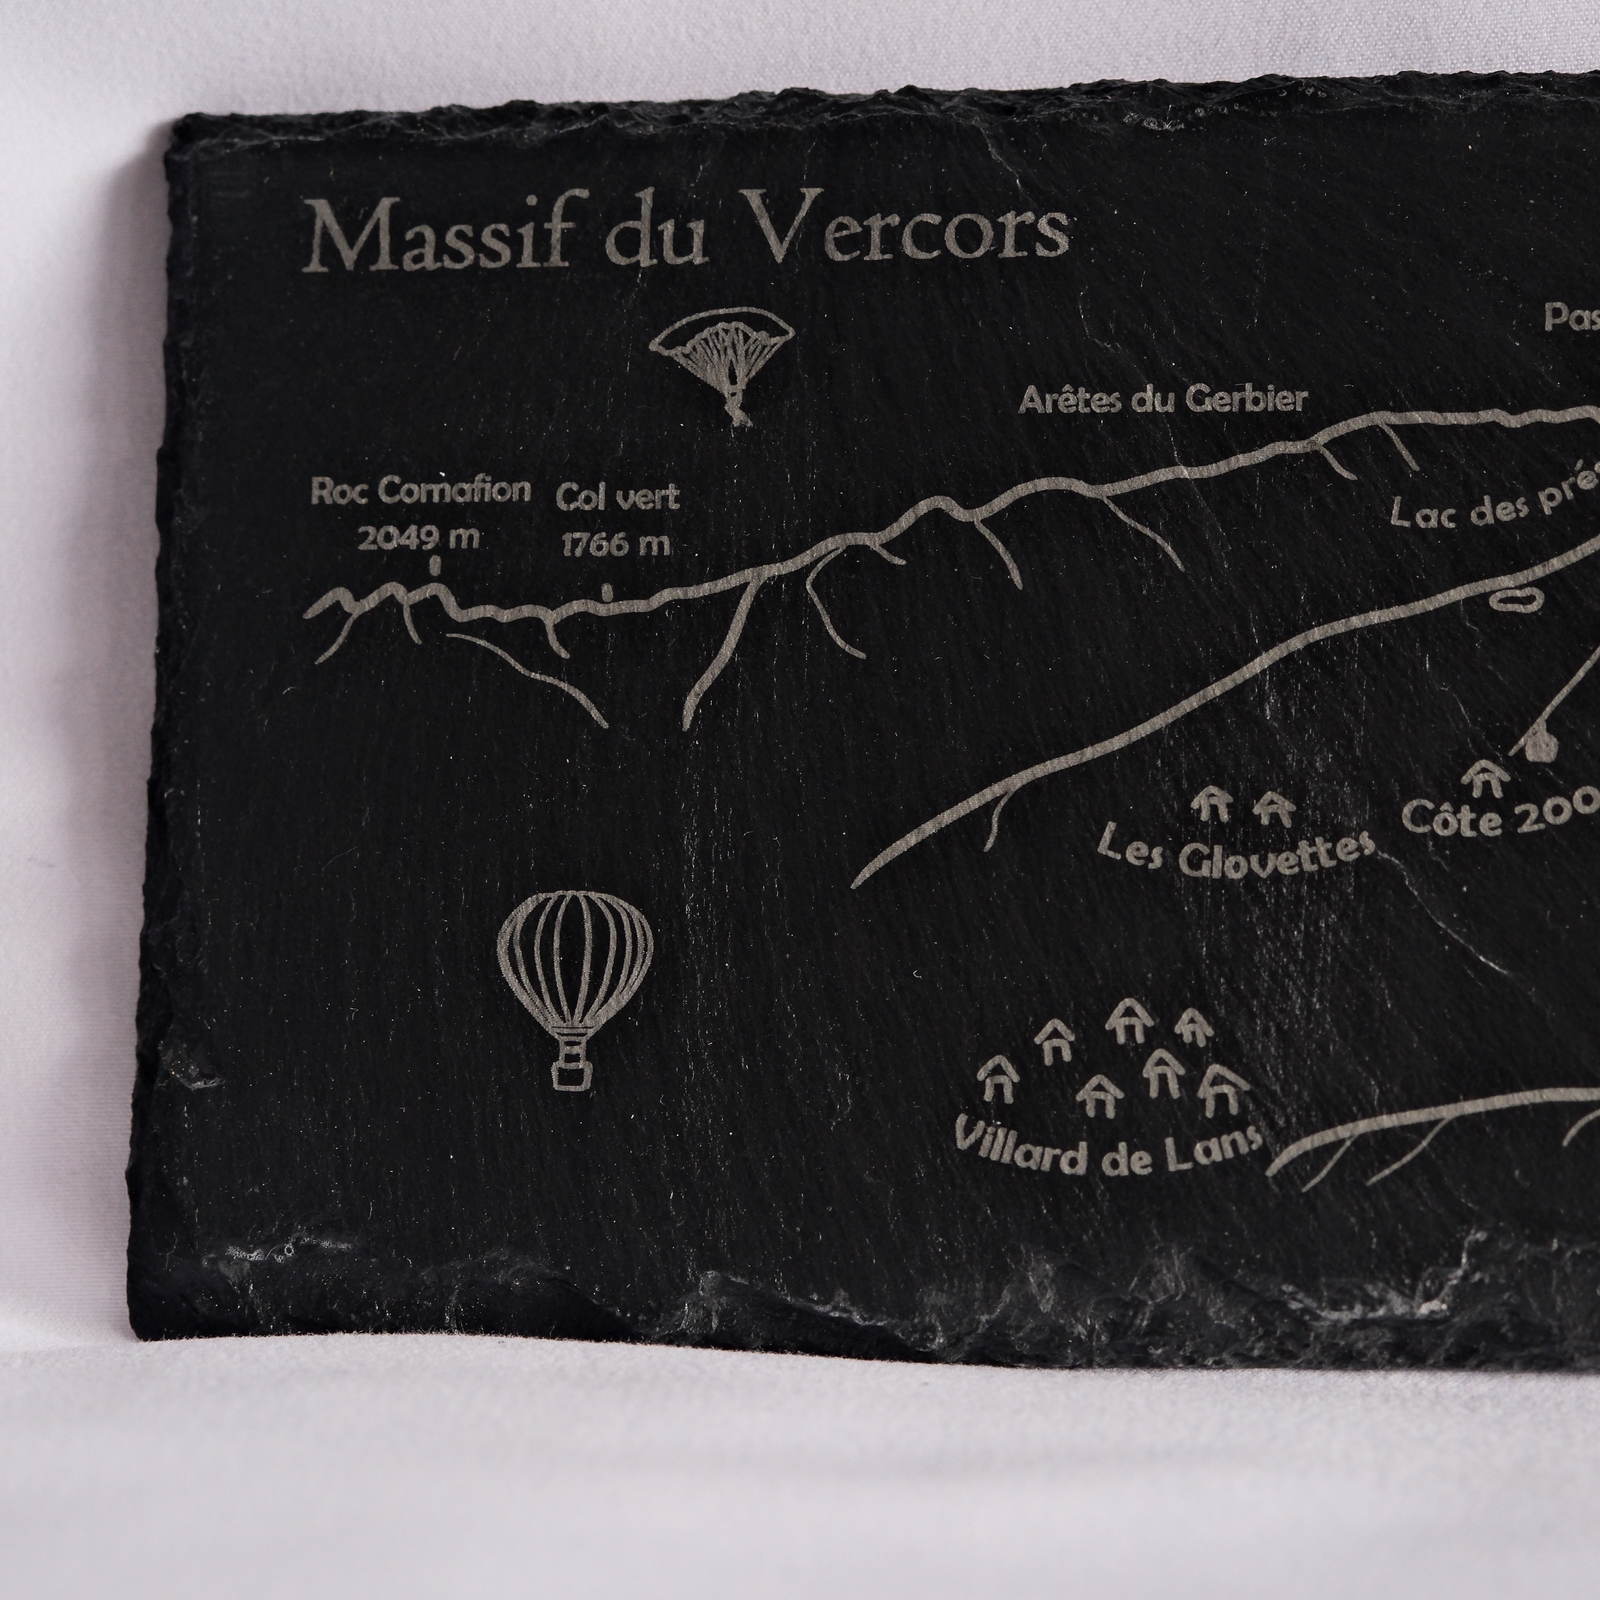 Massif du Vercors
Pas
Arêtes du Gerbier
Roc Cornafion
2049 m
Col vert
1766 m
Lac des prés
Côte 200
Les Glovettes
Villard de Lans